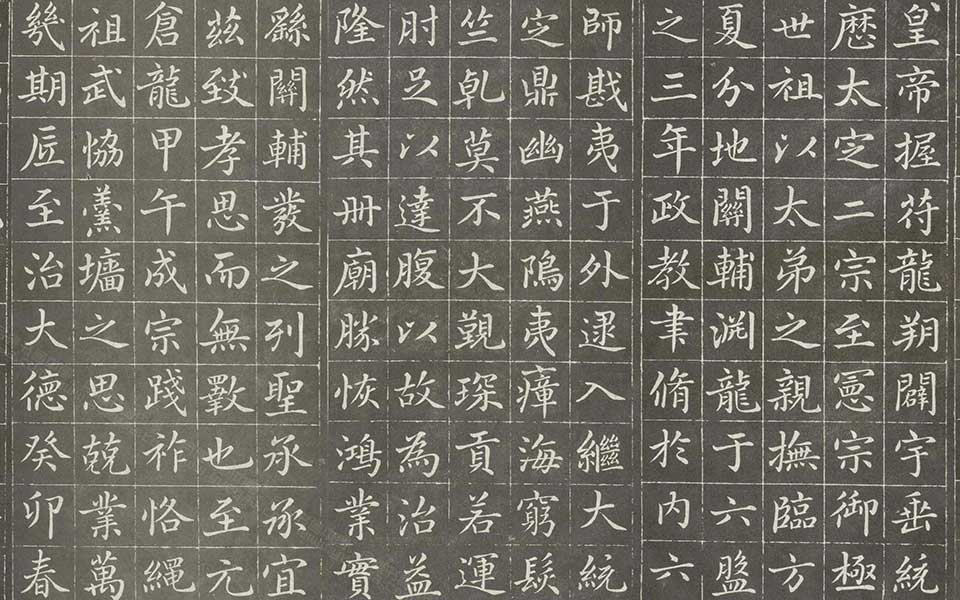 皇帝握苻龍朔闢宇垂統
厯太㝎二宗至憲宗御極
世祖以太弟之親撫臨方
夏分地關輔淵龍于六盤
之三年政教聿脩於内六
師戡夷于外逮入繼大統
㝎鼎幽燕隝夷瘴海窮髮
竺乹莫不大覲琛貢若運
肘足以達腹以故為治益
隆然其冊廟勝恢鴻業實
繇關輔發之列聖承承宜
茲致孝思而無斁也至元
倉龍甲午成宗踐祚恪繩
祖武恊羹墻之思兢業萬
幾期底至治大德癸卯春